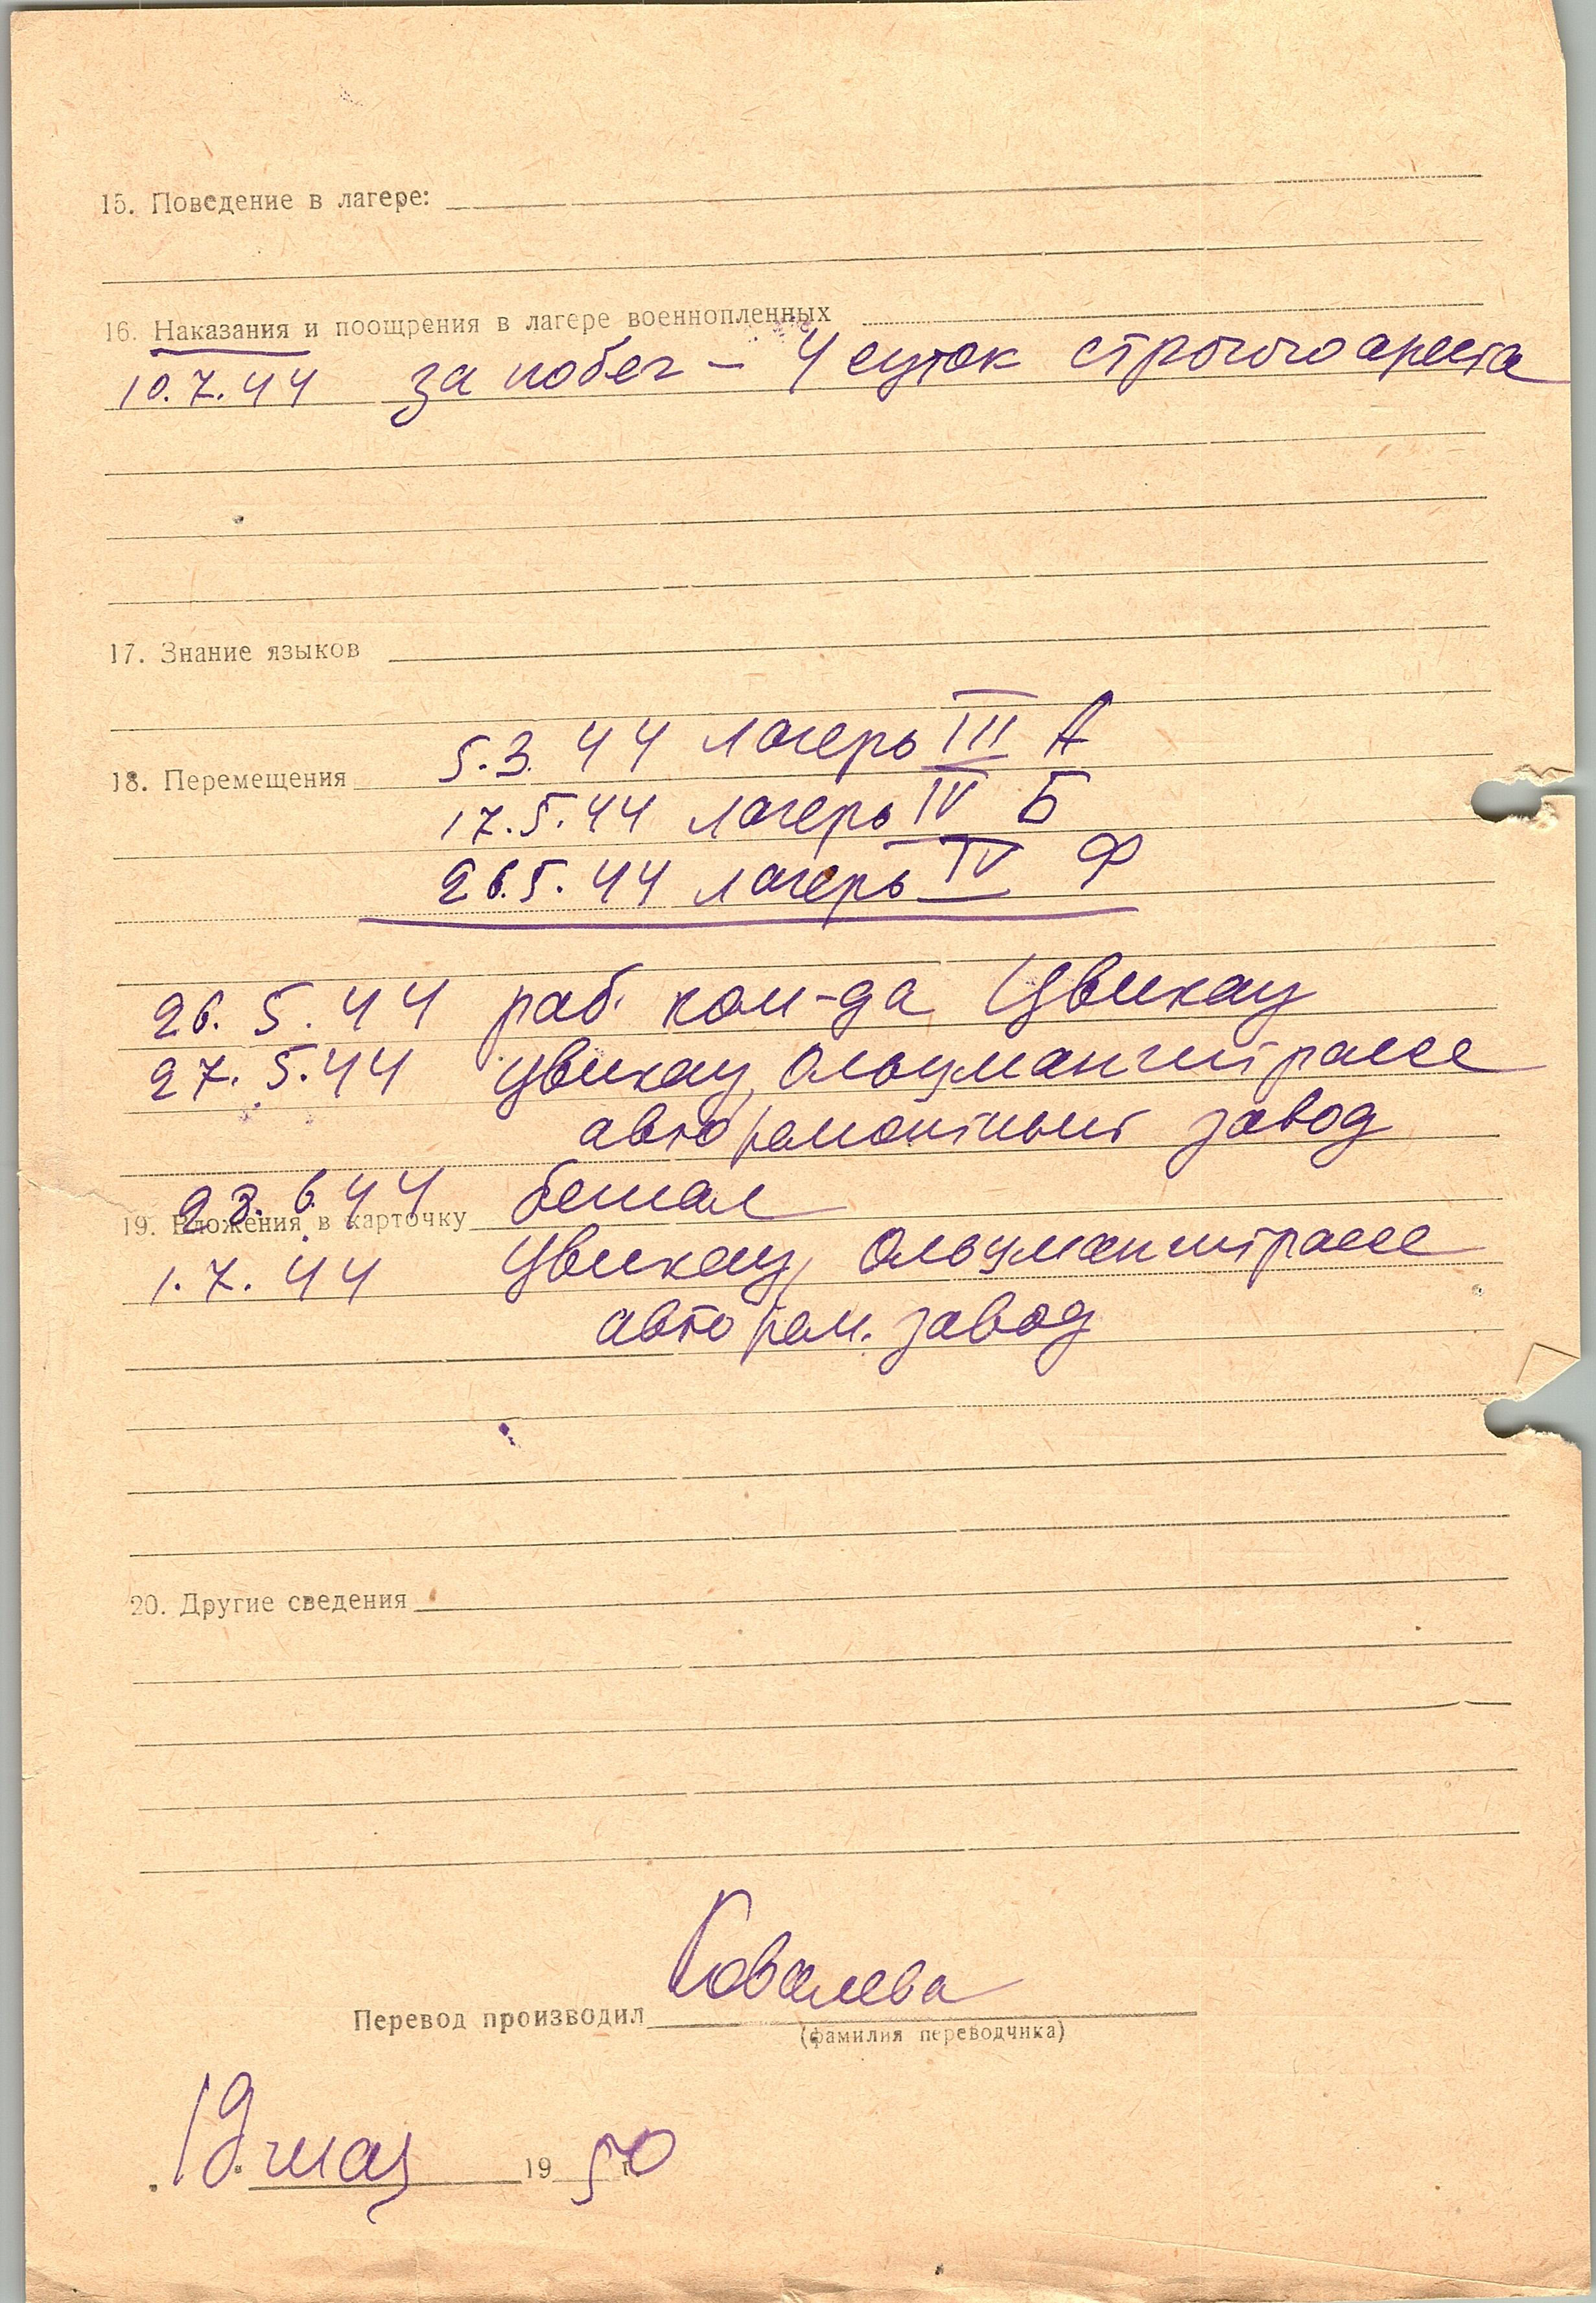 15. Поведение в лагере:
16. Наказания и поощрения в лагере военнопленных
10.7.44 за побег – 4 суток строгого ареста
17. Знание языков
5.3.44 лагерь III А
18. Перемещения
17.5.44 лагерь IV Б
26.5.44 лагерь IV Ф
26.5.44 раб. ком-да Цвикау
27.5.44 Цвикау, Ольцманштрассе
авторемонтный завод
28.6.44 бежал
19. Вложения в карточку
1.7.44 Цвикау, Ольцманштрассе
авторем. завод
20. Другие сведения
Ковалева
Перевод производил
(фамилия переводчика)
19 мая 1950 г.